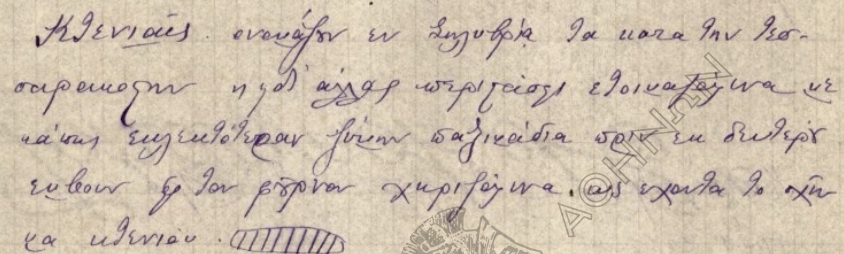 Κτενιαίς ονομάζουν εν Σηλυβρία τα κατά την τεσ-
σαρακοστην η γδ' άλλας περιστάσεις ετοιμαζόμενα με
κάπως εκλεκτότεραν ζύμην παξιμάδια πριν εκ δευτέρου
εμβουν εις τον φούρνον χωριζόμενα, ως εχοντα το σχή-
μα κτενιού.
ΑΘΗΝΩΝ